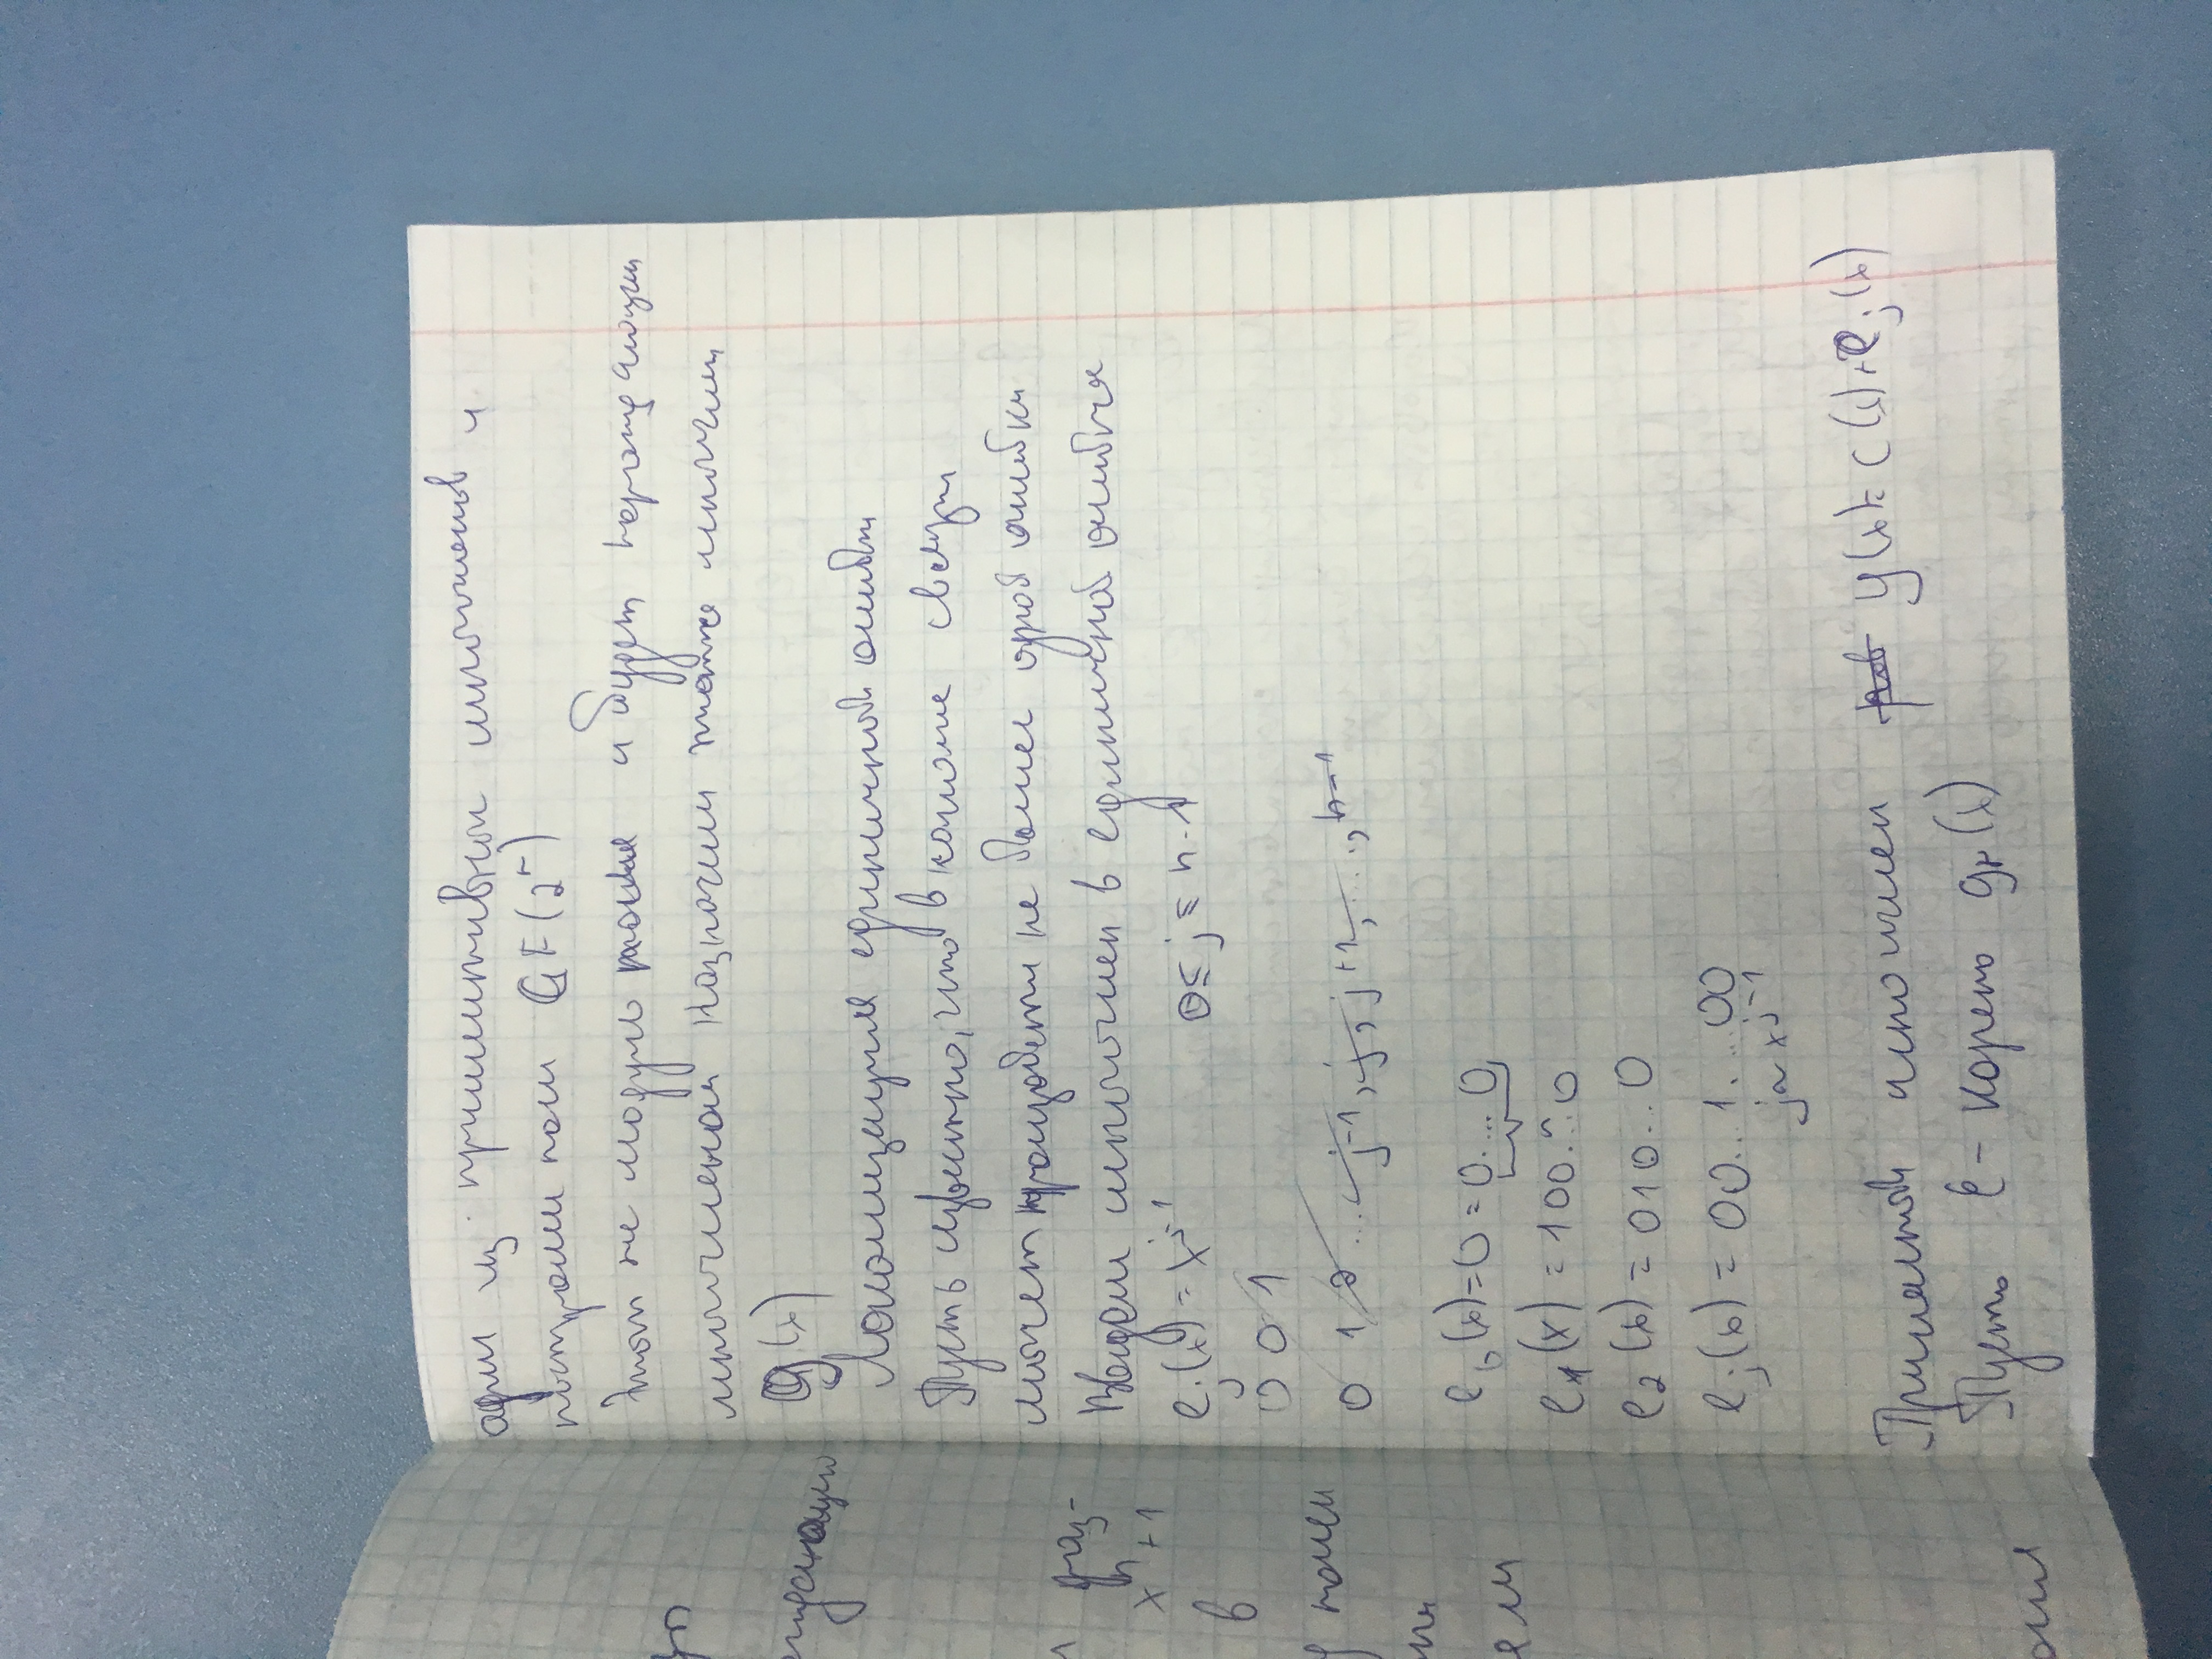 один из примитивных многочленов и
построим поле GF(2^r)
Этот же модуль и будет порождающим
многочленом назначим также многочлен
g(x)
Локализация единичной ошибки
Пусть известно, что в канале связи
может произойти не более одной ошибки
Введем многочлен в единичной ошибке
e_j(x) = x^{j-1} 0 ≤ j ≤ n-1
0 0 1
0 1 2 ... j-1, j, j+1, ...., n-1
e_0(x) = 0 = 0....0
n
e_1(x) = 100...0
e_2(x) = 010...0
e_j(x) = 00...1....00
j ~ x^{j-1}
Принятый многочлен y(x) = c(x) + e_j(x)
Пусть ℓ - корень g_r(x)
раз-
x^n+1
в
полем